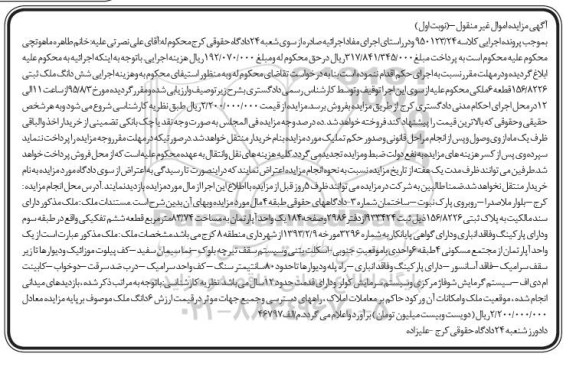 آگهی مزایده اموال غیر منقول –(نوبت اول)
بموجب پرونده اجرایی کلاسه ۹۵۰۱۲۳/۲۴ و در راستای اجرای مفاد اجرائیه صادره از سوی شعبه ۲۴ دادگاه حقوقی کرج محکوم له: آقای علی نصرتی علیه: خانم طاهره ماهوتچی
محکوم علیه محکوم است به پرداخت مبلغ ۳۱۷/۸۴۱/۳۴۵/۰۰۰ ریال در حق محکوم له و مبلغ ۱۹۲/۰۷۰/۰۰۰ ریال هزینه اجرایی. باتوجه به اینکه اجرائیه به محکوم علیه
ابلاغ گردیده و در مهلت مقرر نسبت به اجرای حکم اقدام ننموده است بنا به درخواست تقاضای محکوم له و به منظور استیفای محکوم به و هزینه اجرایی شش دانگ ملک ثبتی
۱۵۶/۸۲۲۶ قطعه ۶ ملکی محکوم علیه از سوی این اجرا توقیف و توسط کارشناس رسمی دادگستری بشرح زیر توصیف و ارزیابی شده و مقرر گردیده مورخ ۹۵/۸/۳ از ساعت ۱۱ الی
۱۲ در محل اجرای احکام مدنی دادگستری کرج از طریق مزایده بفروش برسد مزایده از قیمت ۲/۲۰۰/۰۰۰/۰۰۰ ریال طبق نظریه کارشناسی شروع می شود و به هر شخص
حقیقی و حقوقی که بالاترین قیمت را پیشنهاد کند فروخته خواهد شد. ده درصد وجه مزایده فی المجلس به صورت وجه نقد یا چک بانکی تضمینی از خریدار اخذ و الباقی
ظرف یک ماه از وی وصول و پس از انجام مراحل قانونی و صدور حکم تملیک مورد مزایده بنام خریدار منتقل خواهد شد. در صورتیکه در مهلت مقرر وجه مزایده را پرداخت ننماید
سپرده وی پس از کسر هزینه های مزایده به نفع دولت ضبط و مزایده تجدید می گردد. کلیه هزینه های نقل و انتقال به عهده محکوم علیه است که از محل فروش پرداخت خواهد
شد. طرفین می توانند ظرف مدت یک هفته از تاریخ مزایده نسبت به نحوه انجام مزایده اعتراض نمایند که در اینصورت تا رسیدگی به اعتراض از سوی دادگاه مورد مزایده به نام
خریدار منتقل نخواهد شد. ضمنا طالبین به شرکت در مزایده می توانند ظرف ۵ روز قبل از مزایده با اطلاع این اجرا از مال مورد مزایده بازدید نمایند. آدرس محل انجام مزایده:
کرج –بلوار ملاصدرا –روبروی پارک نبوت –ساختمان شماره ۳– دادگاههای حقوقی طبقه ۴ مال مورد مزایده و بهای آن بدین شرح است. مستندات ملک: ملک مذکور دارای
سند مالکیت به پلاک ثبتی ۱۵۶/۸۲۲۶ ذیل ثبت ۹۳۳۴۲۴ دفتر ۲۹۸۶ صفحه ۱۸۴ یک واحد آپارتمان به مساحت ۸۳۷۴ متر مربع قطعه ششم تفکیکی واقع در طبقه سوم
و دارای پارکینگ و فاقد انباری و دارای گواهی پایانکار به شماره ۳۲۹۶ مورخه ۱۳۹۳/۲/۹ از شهرداری منطقه ۸ کرج می باشد مشخصات ملک: ملک مذکور عبارت است از یک
واحد آپارتمان از مجتمع مسکونی ۴ طبقه ۶ واحدی با موقعیت جنوبی –اسکلت بتنی و سیستم سقف تیرچه بلوک –نما سیمان سفید –کف پیلوت موزائیک و دیوارها تا زیر
سقف سرامیک –فاقد آسانسور –دارای پارکینگ و فاقد انباری –راه پله و دیوارها تا حدود ۸۰ سانتیمتر سنگ –کف واحد سرامیک –درب ضد سرقت –دو خواب –کابینت
ام دی اف –سیستم گرمایش شوفاژ مرکزی و سیستم سرمایش کولر و دارای قدمت حدود ۱۲ سال می باشد. نظریه کارشناسی: باتوجه به مراتب ذکر شده، بازدیدهای میدانی
انجام شده، موقعیت ملک و امکانات آن و رکود حاکم بر معاملات املاک، راههای دسترسی و جمیع جهات موثر در قیمت ارزش ۶ دانگ ملک موصوف بر پایه مزایده معادل
۲/۲۰۰/۰۰۰/۰۰۰ ریال (دویست و بیست میلیون تومان) برآورد و اعلام می گردد. م/الف ۴۶۷۹۷
دادورز شعبه ۲۴ دادگاه حقوقی کرج –علیزاده